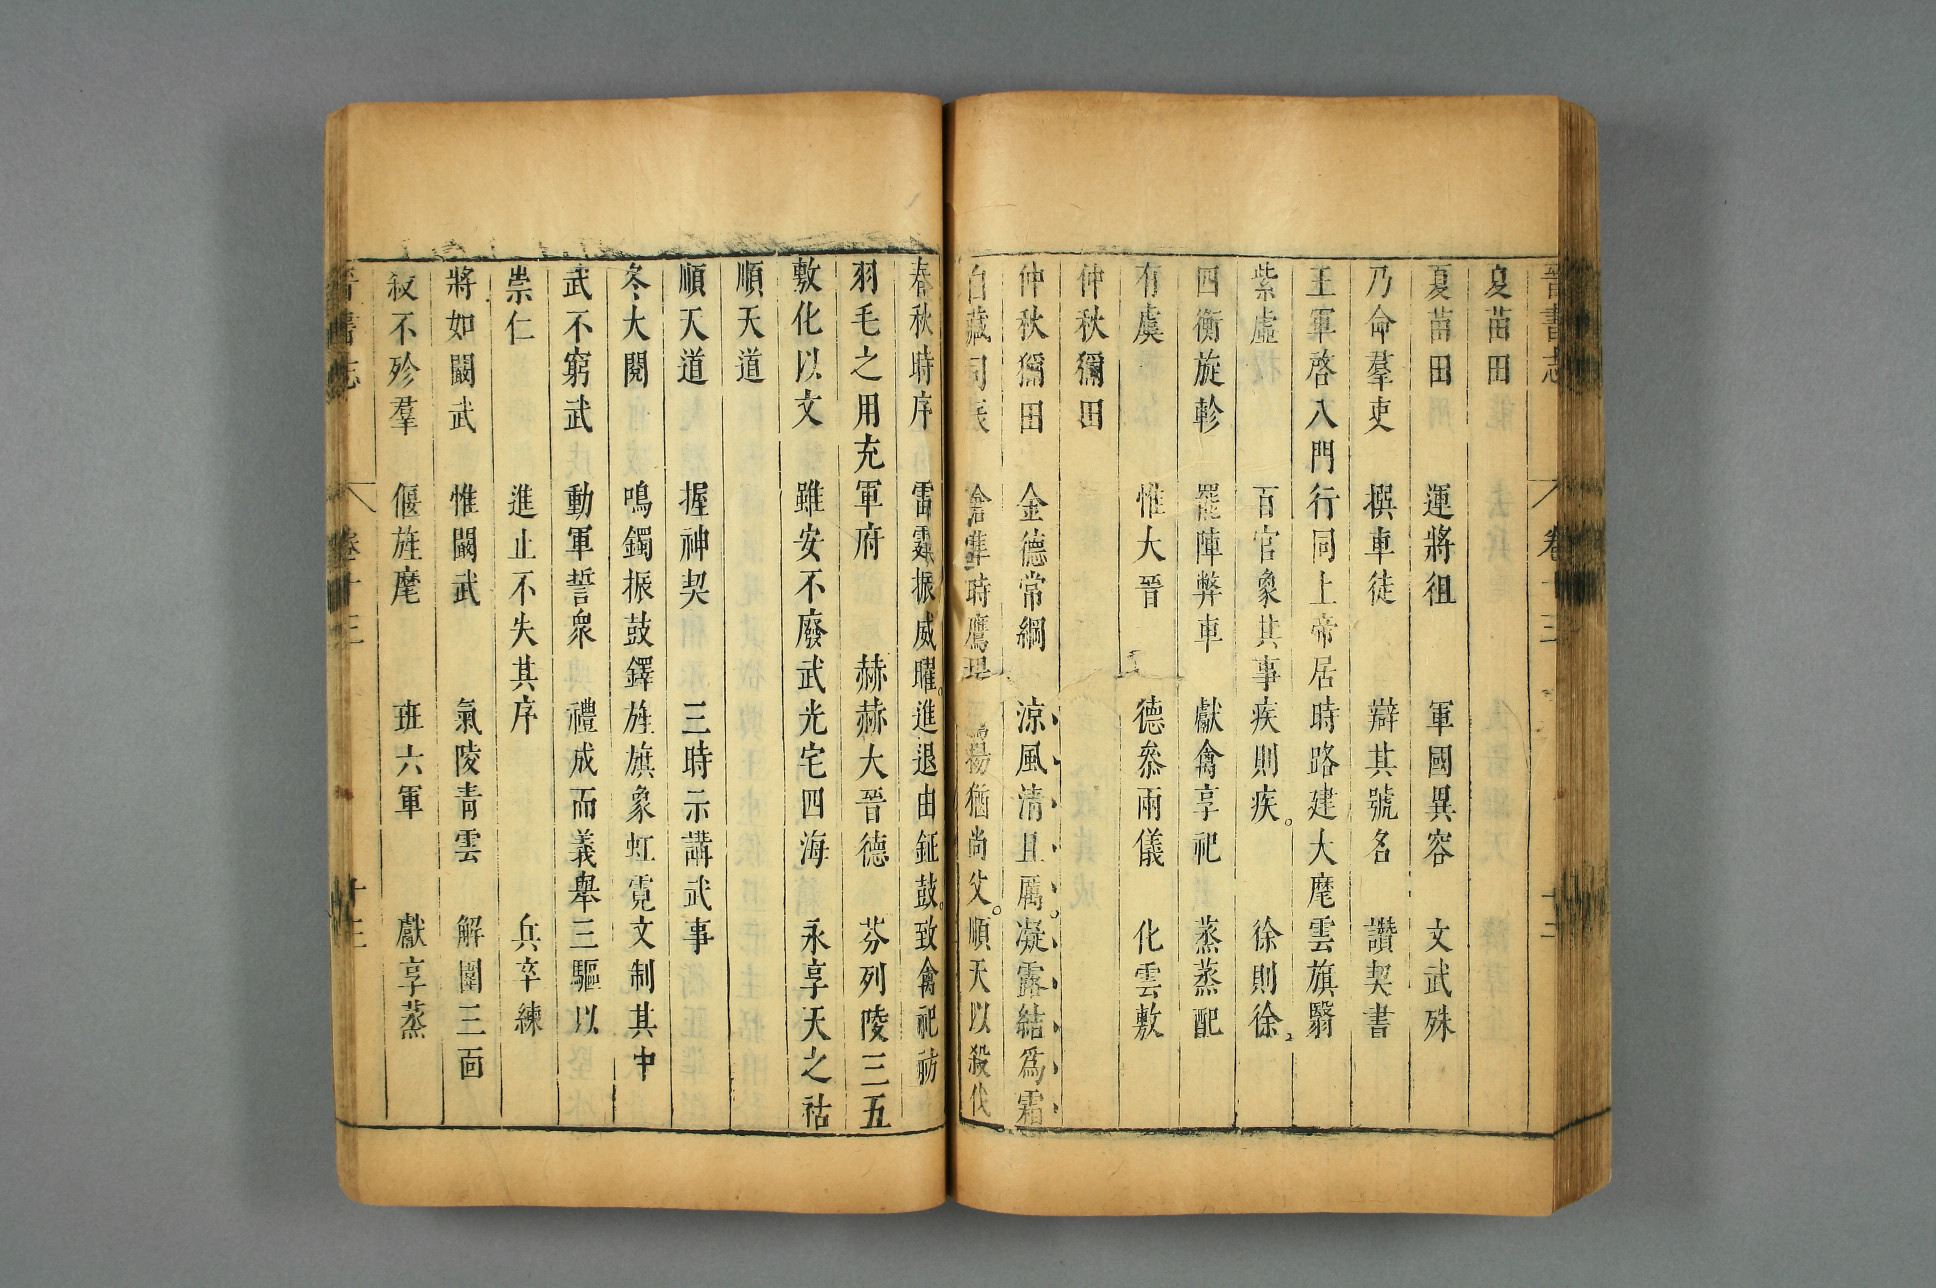 晉書志 卷十三 十二
夏苗田
夏苗田 運將徂 軍國異容 文武殊
乃命羣吏 撰車徒 辯其號名 讚契書
王軍啓八門 行同上帝居 時路建大麾 雲旗翳
紫虛 百官象其事 疾則疾 徐則徐
四衡旋軫 罷陣弊車 獻禽享祀 蒸蒸配
有虞 惟大晉 德叅兩儀 化雲敷
仲秋獮田
仲秋獮田 金德常綱 涼風清且厲 凝露結爲霜
白藏司辰 隼時鷹 揚猶尚父 順天以殺伐
春秋時序 雷霆振威曜 進退由鉦鼓 致禽祀祊
羽毛之用充軍府 赫赫大晉德 芬列陵三五
敷化以文 雖安不廢武 光宅四海 永享天之祜
順天道
順天道 握神契 三時示 講武事
冬大閱 鳴鐲振鼓鐸 旌旗象虹霓 文制其中
武不窮武 動軍誓衆 禮成而義舉 三驅以
崇仁 進止不失其序 兵卒練
將如闞武 惟闞武 氣陵青雲 解圍三面
殺不殄羣 偃旌麾 班六軍 獻享蒸
晉書志 卷十三 十三